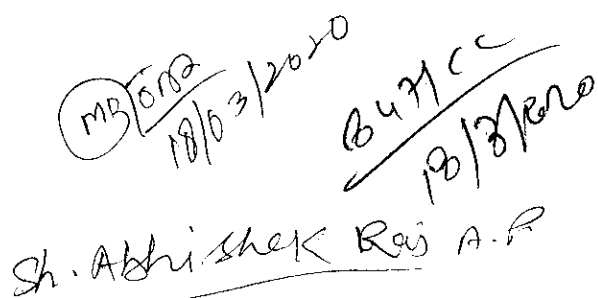 MB
18/03/2020
847/CC
18/3/2020
Sh. Abhishek Raj A.R